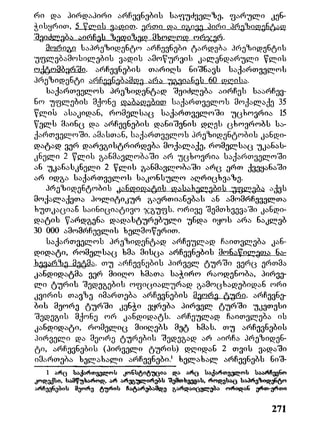 რი და პირდაპირი არჩევნების საფუძველზე, ფარული კენ-
ჭისყრით, 5 წლის ვადით. ერთი და იგივე პირი პრეზიდენტად
შეიძლება აირჩეს ზედიზედ მხოლოდ ორჯერ.
მორიგი საპრეზიდენტო არჩევნები ტარდება პრეზიდენტის
უფლებამოსილების ვადის ამოწურვის კალენდარული წლის
ოქტომბერში. არჩევნების თარიღს ნიშნავს საქართველოს
პრეზიდენტი არჩევნებამდე არა უგვიანეს 60 დღისა.
საქართველოს პრეზიდენტად შეიძლება აირჩეს საარჩევ-
ნო უფლების მქონე დაბადებით საქართველოს მოქალაქე 35
წლის ასაკიდან, რომელსაც საქართველოში უცხოვრია 15
წელს მაინც და არჩევნების დანიშვნის დღეს ცხოვრობს სა-
ქართველოში. ამასთან, საქართველოს პრეზიდენტობის კანდი-
დატად ვერ დარეგისტრირდება მოქალაქე, რომელსაც უკანას-
კნელი 2 წლის განმავლობაში არ უცხოვრია საქართველოში
ან უკანასკნელი 2 წლის განმავლობაში არც ერთ ქვეყანაში
არ იდგა საქართველოს საკონსულო აღრიცხვაზე.
პრეზიდენტობის კანდიდატის დასახელების უფლება აქვს
მოქალაქეთა პოლიტიკურ გაერთიანებას ან ამომრჩეველთა
ხუთკაციან საინიციატივო ჯგუფს, ორივე შემთხვევაში კანდი-
დატის წარდგენა დადასტურებული უნდა იყოს არა ნაკლებ
30 000 ამომრჩევლის ხელმოწერით.
საქართველოს პრეზიდენტად არჩეულად ჩაითვლება კან-
დიდატი, რომელსაც ხმა მისცა არჩევნების მონაწილეთა ნა-
ხევარზე მეტმა. თუ არჩევნების პირველ ტურში ვერც ერთმა
კანდიდატმა ვერ მიიღო ხმათა საჭირო რაოდენობა, პირვე-
ლი ტურის შედეგების ოფიციალურად გამოცხადებიდან ორი
კვირის თავზე იმართება არჩევნების მეორე ტური. არჩევნე-
ბის მეორე ტურში კენჭი ეყრება პირველ ტურში უკეთესი
შედეგის მქონე ორ კანდიდატს. არჩეულად ჩაითვლება ის
კანდიდატი, რომელიც მიიღებს მეტ ხმას. თუ არჩევნების
პირველი და მეორე ტურების შედეგად არ აირჩა პრეზიდენ-
ტი, არჩევნების (პირველი ტურის) დღიდან 2 თვის ვადაში
იმართება ხელახალი არჩევნები.¹ ხელახალ არჩევნებს ნიშ-
1 არც საქართველოს კონსტიტუცია და არც საქართველოს საარჩევნო
კოდექსი, სამწუხაროდ, არ არეგულირებს შემთხვევას, როდესაც საპრეზიდენტო
არჩევნების მეორე ტურის ჩატარებამდე გარდაიცვლება ორიდან ერთ-ერთი
271